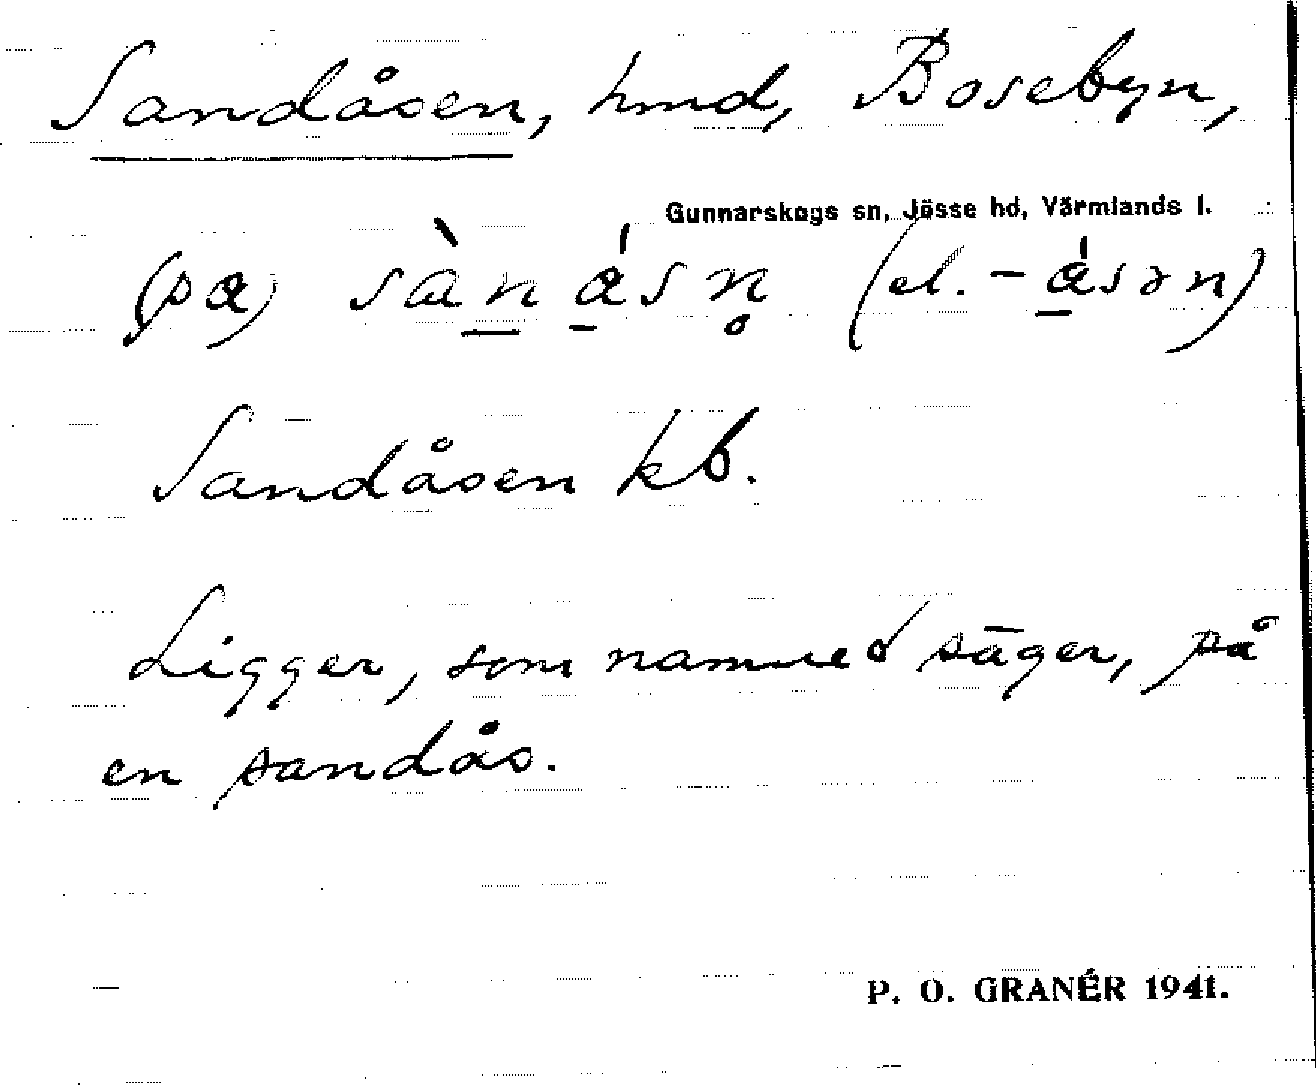 Sandåsen, hmd, Bosebyn,
Gunnarskogs sn, Jösse hd, Värmlands l.
(pa) sànásn̥ (el. -ásən)
Sandåsen kb.
Ligger, som namnet säger, på
en sandås.
P. O. GRANÉR 1941.